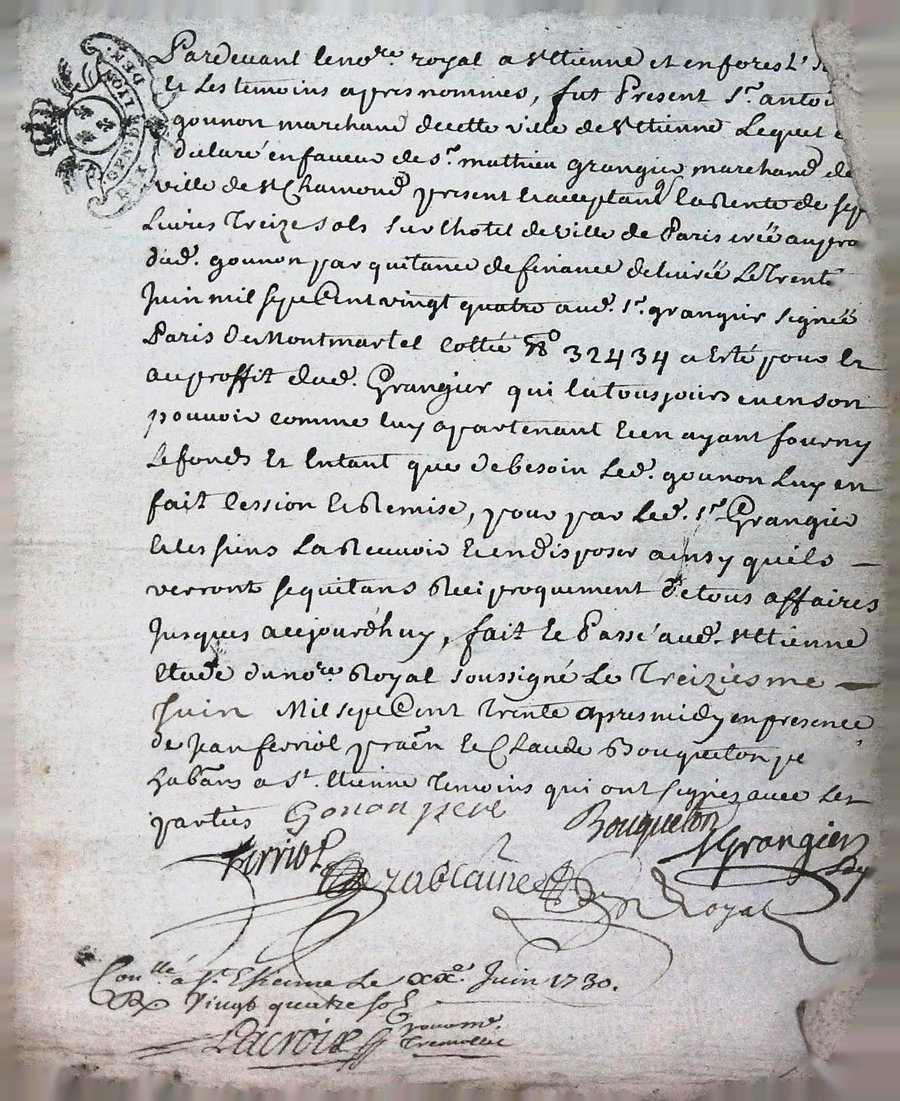 GEN. DE LYON
DIX DEN.
Pardevant le no.re royal a St Etienne et en forests
et les temoins apres nommés, fut Present Sr. antoi
gounon marchand de cette ville de St Etienne Lequel
declare en faveur de Sr. mathieu grangier marchand de
ville de St Chamond present et acceptant la Rente de sep
Livres Treize sols sur lhotel de ville de Paris créé au pro
dud. gounon par quitance de finance delivrée Le Trente
Juin mil sept Cent vingt quatre aud. Sr. grangier signée
Paris de Montmartel cottée No 32434 a Esté pour et
au proffit dud. Grangier qui la tousjours eu en son
pouvoir comme luy apartenant et en ayant fourny
Le fonds et Entant que de besoin Led. gounon Luy en
fait Cession et Remise, pour par Led. Sr. Grangier
et les siens La Recevoir et en disposer ainsy quils
verront se quitans Reciproquement de tous affaires
Jusques aujourdhuy, fait et Passé aud. St Etienne
Etude du no.re Royal soussigné Le Treiziesme
Juin Mil sept Cent Trente apres midy en presence
de Jean ferriol praên et Claude Bouqueton
habans a St. Etienne Temoins qui ont signez avec Les
parties Gonon pere
Bouqueton
ferriol
Grangier
Royal
Con.llé a St. Etienne Le xxe. Juin 1730.
R Vingt quatre sols
Lacroix